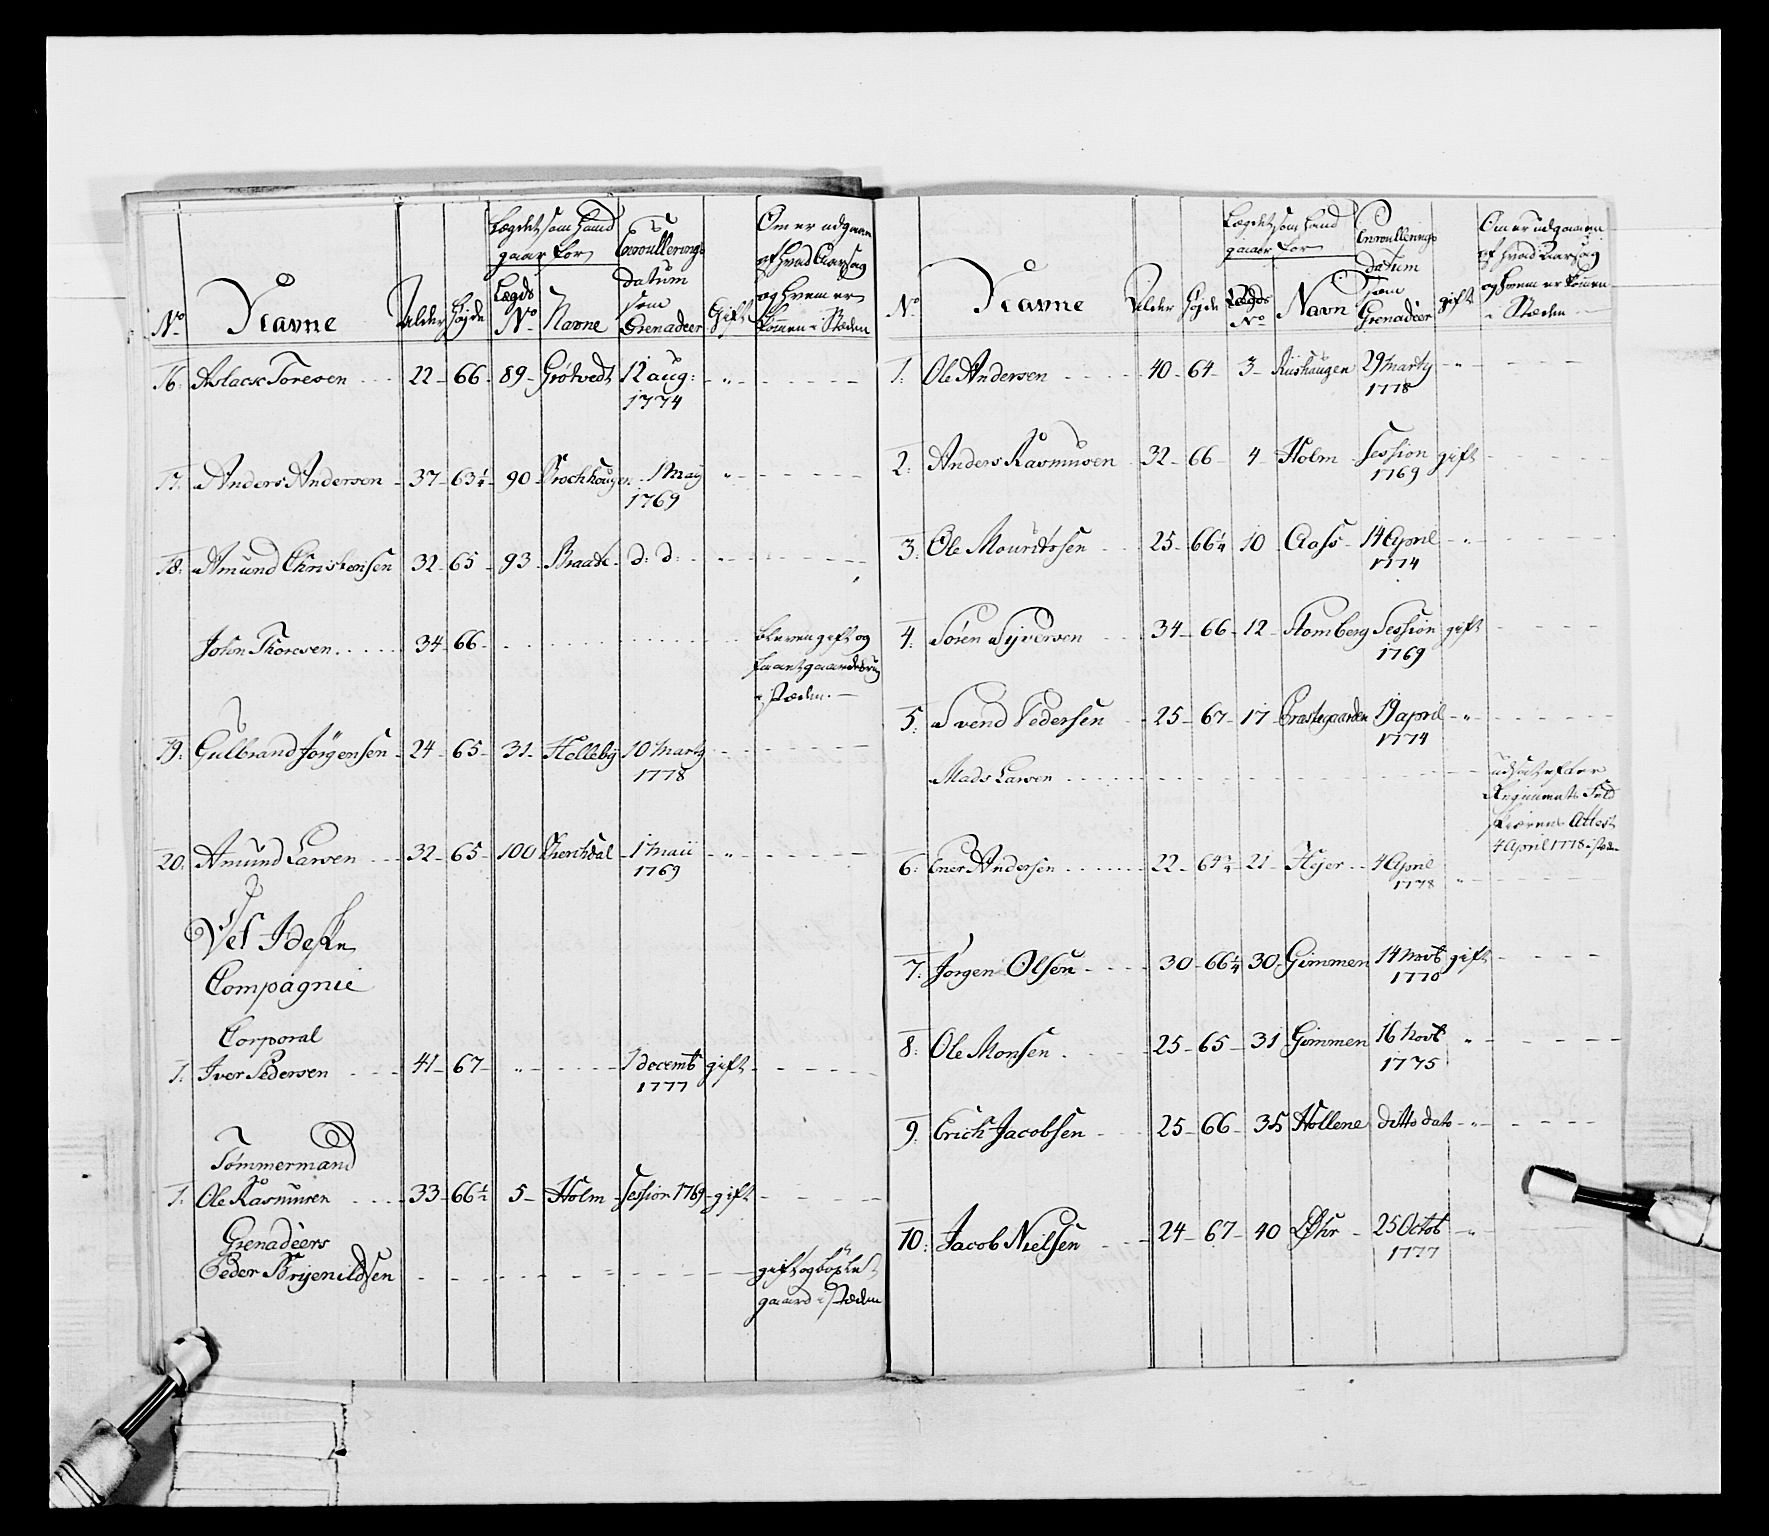 No Navne Alder Højde Lægdet som hand gaar for Lægds No Navne Enroullerings datum som Grenadeer Gift Om er udgaaen af hvad Aarsag og hvem er kommen i Stæden
16. Aslack Toresen 22 - 66 - 89 - Grøtvedt 12 aug: - " -
1774
17. Anders Andersen - 37 - 63 1/4 90 - Brochhougen 1 May "
1769
18. Amund Christensen 32 - 65 - 93 - Braade - d: d:
John Thoresen 34 - 66 - bleven gift og
i stæden
19. Gulbrand Jørgensen - 24 - 65 - 31 - Helleby 10 Marty
1778
20. Amund Larsen 32 - 65 - 100 1 Maii - " -
1769
Compagnie
Corporal
1. Iver Pedersen 41 - 67 - " 1 decemb gift
1777
Tømmermand
1. Ole Rasmusen 33 - 66 1/2 5 - Holm - Session 1769 - gift
Grenadeers
Peder Brynildsen gift og bøxlet
gaard i stæden
No Navne Alder Højde Lægdet som hand gaaer for Lægds No Navn Enroullerings datum som Grenadeer gift Om er udgaaen af hvad Aarsag og hvem er kommen i Stæden
1. Ole Andersen 40 - 64 - 3 - Riishaugen 29 Marty - " -
1778
2. Anders Rasmusen 32 - 66 - 4 - Holm - Session gift
1769
3. Ole Mouritssen 25 - 66 1/4 10 - Aass - 14 April - " -
1774
4. Søren Syversen 34 - 66 - 12 - Flomberg Session gift
1769
5. Svend Pedersen 25 - 67 - 17 - Præstegaarden 19 april - " -
1774
Mads Larsen udsat efter
Regiments Feld
skiærens Attest
4 April 1778 i stæden
6. Ener Andersen 22 - 64 3/4 21 - Hejer 4 April
1778 "
7. Jørgen Olsen 30 - 66 1/4 30 - Gimmen 14 Novb gift
1770
8. Ole Monsen 25 - 65 - 31 - Gimmen 16 Novb "
1775
9. Erich Jacobsen 25 - 66 - 35 Hollene ditto dato - " -
10. Jacob Nielsen 24 - 67 - 40 Øhr - 25 Octob - " -
1777